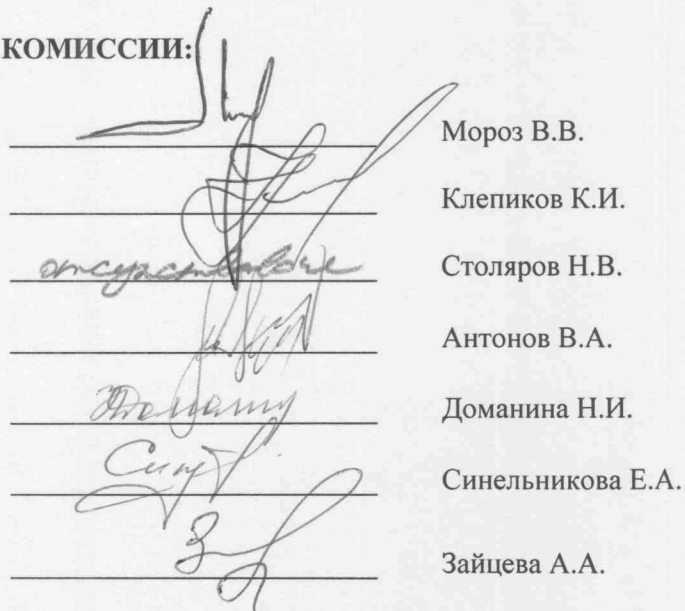 КОМИССИИ:
Мороз В.В.
Клепиков К.И.
отсутствовал Столяров Н.В.
Антонов В.А.
Доманина Н.И.
Синельникова Е.А.
Зайцева А.А.